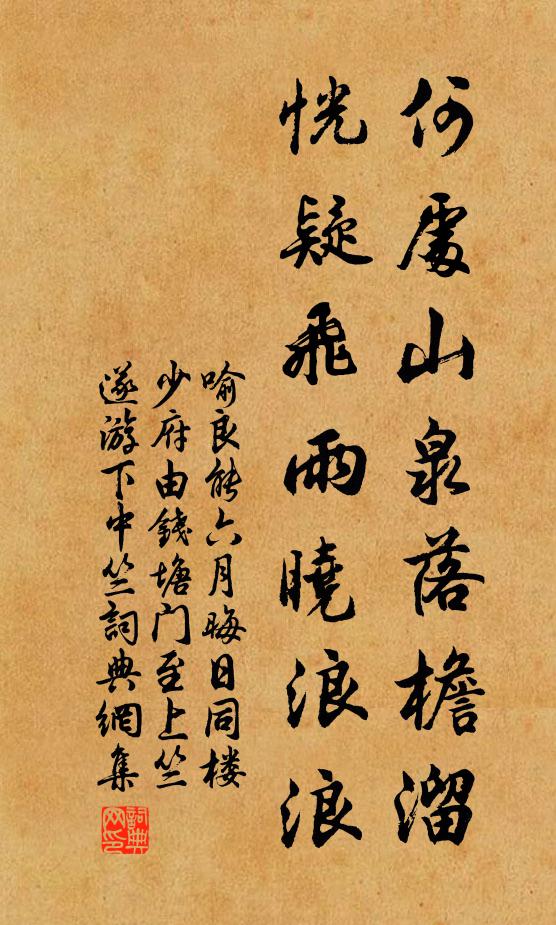 何處山泉落檐溜
恍疑飛雨曉浪浪
喻良能六月晦日同楼
少府由錢塘门至上竺
遂游下中竺詞典網集
詞典网印